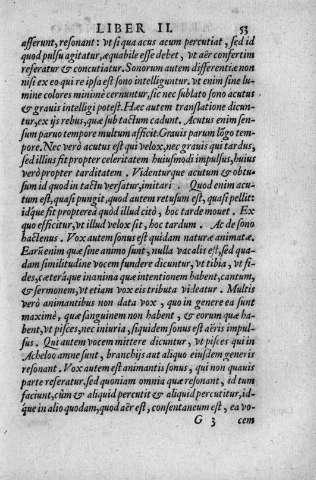 LIBER II. 53
afferunt, resonant: vt si qua acus acum percutiat, sed id
quod pulsu agitatur, æquabile esse debet, vt aër confertim
referatur & concutiatur. Sonorum autem differentiæ non
nisi ex eo qui re ipsa est sono intelliguntur, vt enim sine lu-
mine colores minimè cernuntur, sic nec sublato sono acutus
& grauis intelligi potest. Hæc autem translatione dicun-
tur, ex ijs rebus, quæ sub tactum cadunt. Acutus enim sen-
sum paruo tempore multum afficit. Grauis parum lõgo tem-
pore. Nec verò acutus est qui velox, nec grauis qui tardus,
sed illius fit propter celeritatem huiusmodi impulsus, huius
verò propter tarditatem. Videnturque acutum & obtu-
sum id quod in tactu versatur, imitari. Quod enim acu-
tum est, quasi pungit, quod autem retusum est, quasi pellit:
idq́ue fit propterea quod illud citò, hoc tarde mouet. Ex
quo efficitur, vt illud velox sit, hoc tardum. Ac de sono
hactenus. Vox autem sonus est quidam naturæ animatæ.
Earũ enim quæ sine animo sunt, nulla vocalis est, sed qua-
dam similitudine vocem fundere dicuntur, vt tibia, vt fi-
des, cæteráque inanima quæ intentionem habent, cantum,
& sermonem, vt etiam vox eis tributa videatur. Multis
verò animantibus non data vox, quo in genere ea sunt
maximè, quæ sanguinem non habent, & eorum quæ ha-
bent, vt pisces, nec iniuria, siquidem sonus est aëris impul-
sus. Qui autem vocem mittere dicuntur, vt pisces qui in
Acheloo amne sunt, branchijs aut aliquo eiusdem generis
resonant. Vox autem est animantis sonus, qui non quauis
parte referatur, sed quoniam omnia quæ resonant, id tum
faciunt, cùm & aliquid percutit & aliquid percutitur, id-
q́ue in alio quodam, quod aër est, consentaneum est, ea vo-
G 3 cem